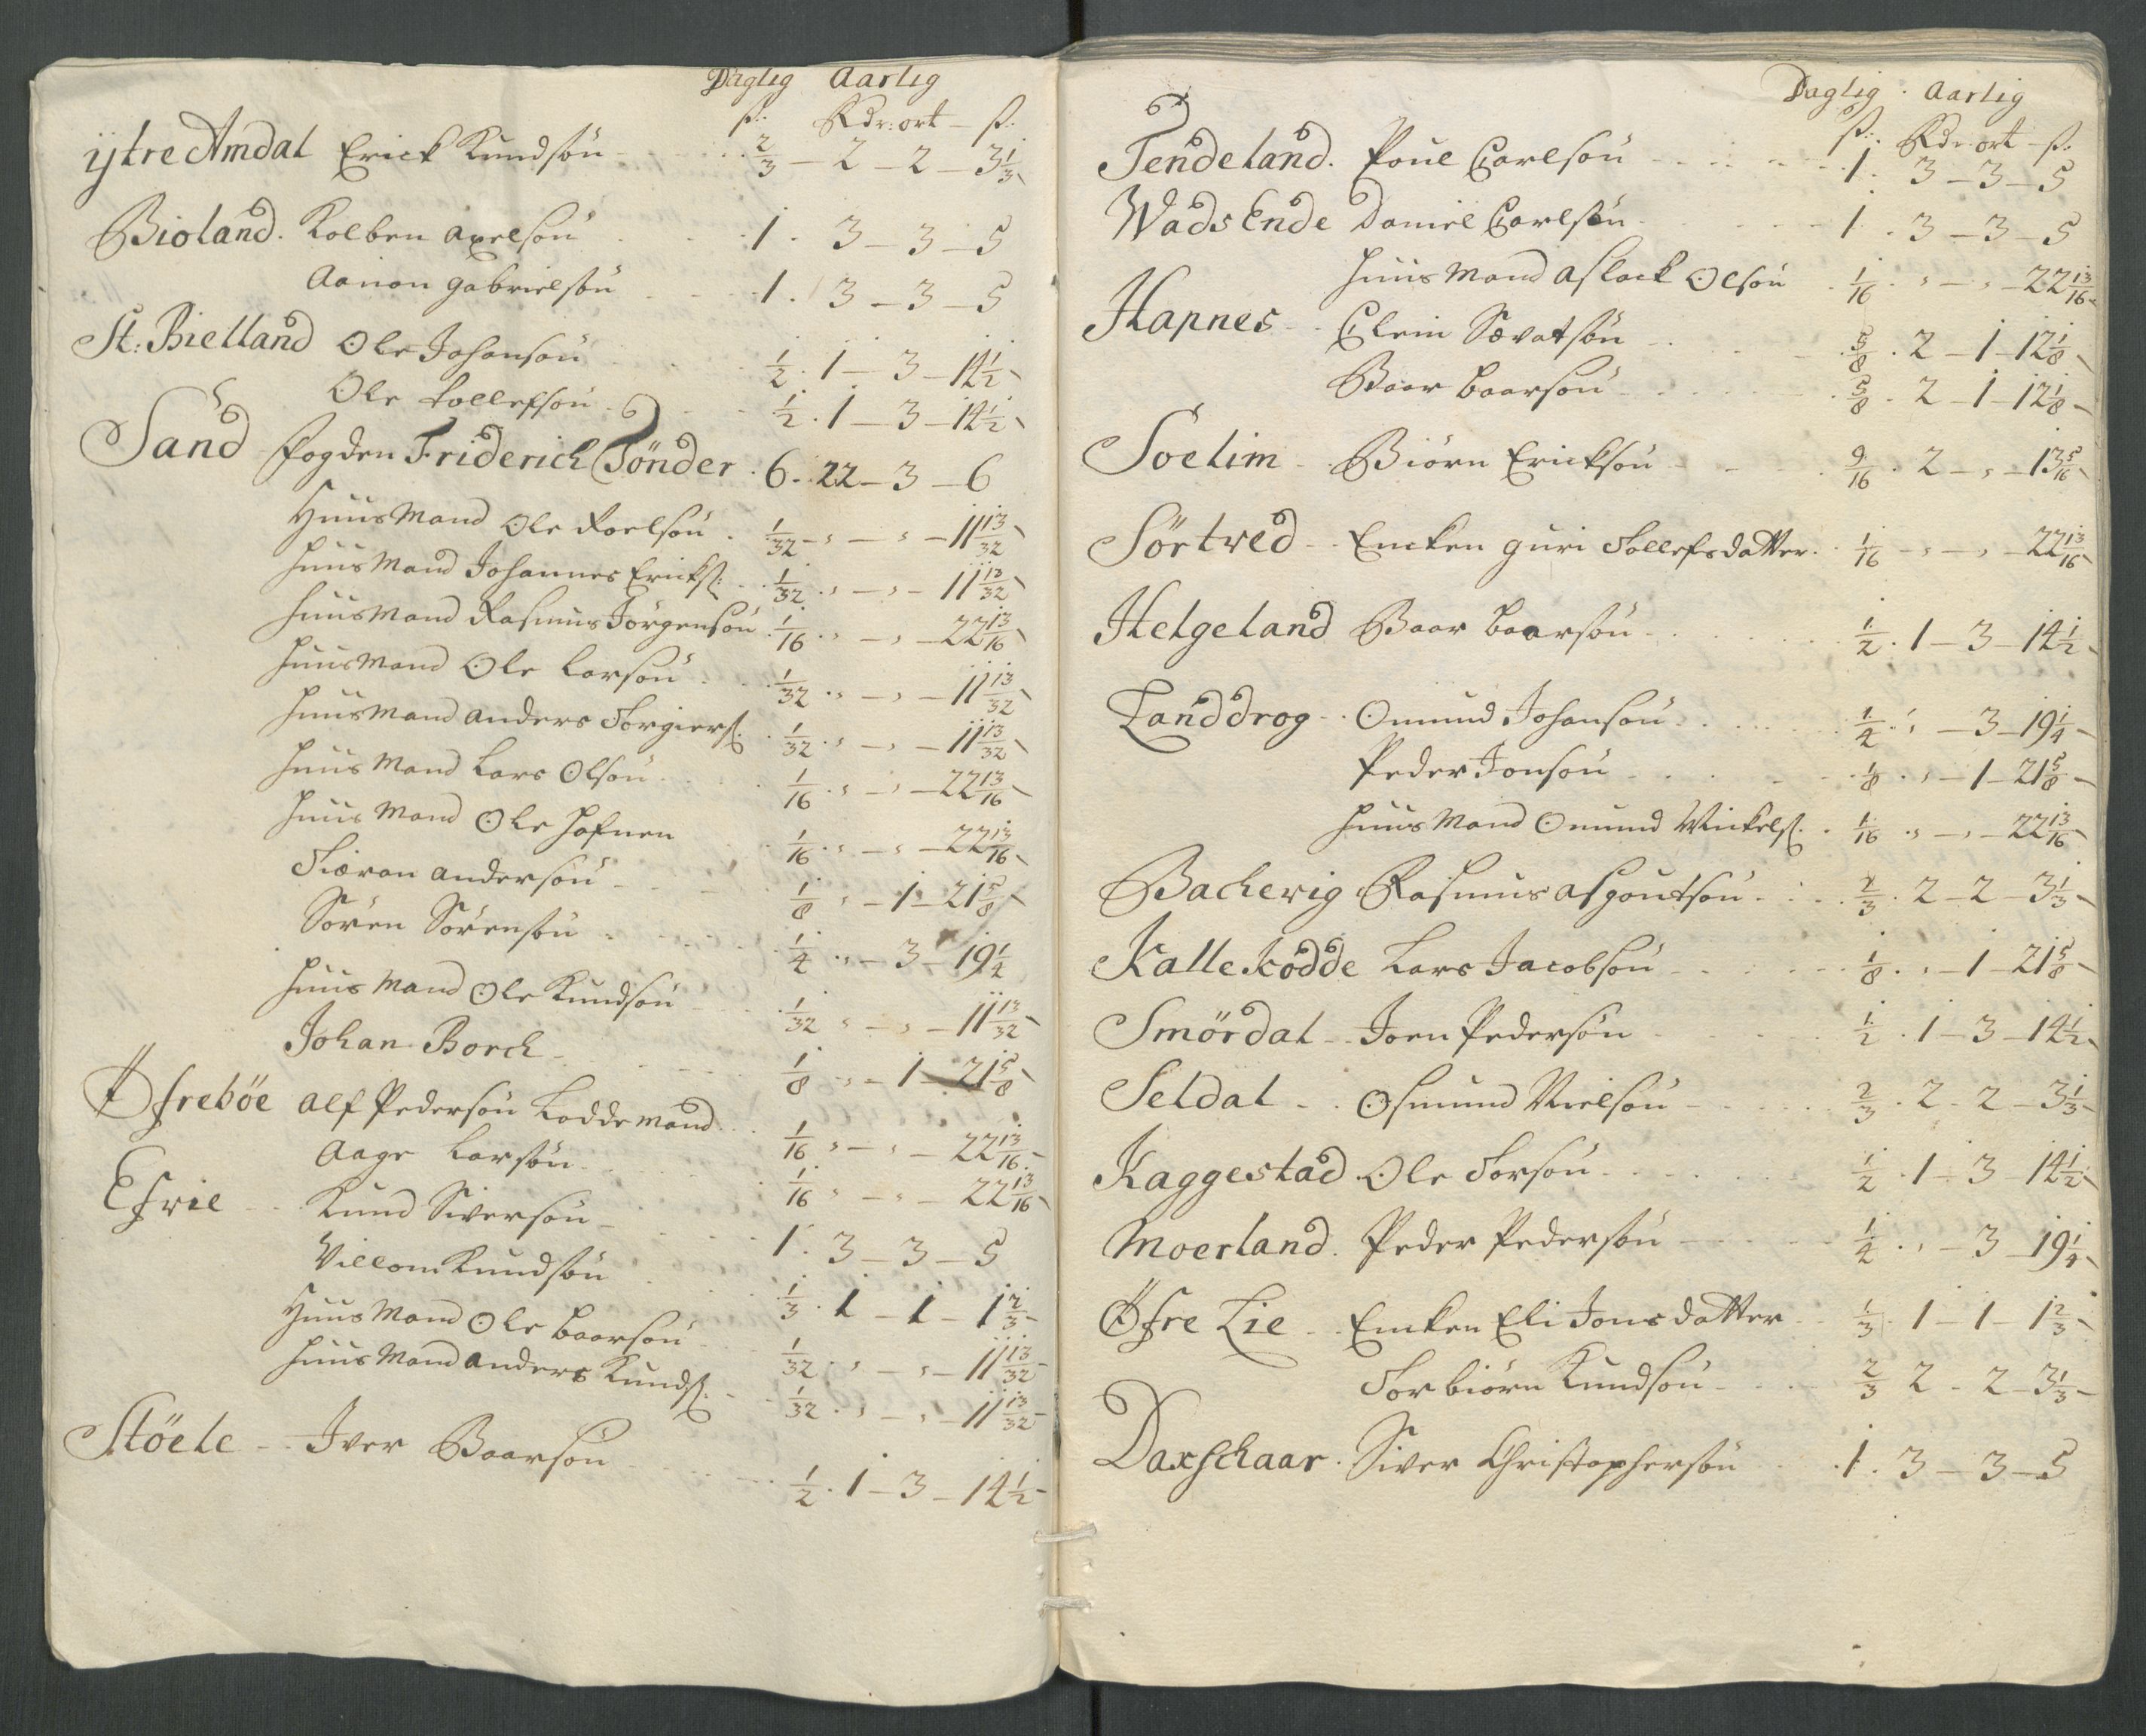 Daglig Aarlig
ß: Rdr: ort – ß:
ÿtre Amdal Erick Knudsøn 2/3 – 2 – 2 – 3 1/3
Bioland. Kolben Axelsøn 1. 3 – 3 – 5
Aanon Gabrielsøn 1. 3 – 3 – 5
St: Bielland Ole Johansøn 1/2. 1 – 3 – 14 1/2
Ole Tollefsøn 1/2. 1 – 3 – 14 1/2
Sand Fogden Friderich Tönder. 6. 22 – 3 – 6
Huus Mand Ole Roelsøn. 1/32 – „ – „ – 11 13/32
Huus Mand Johannes Ericks: 1/32. „ – „ – 11 13/32
Huus Mand Rasmus Jörgensøn 1/16. „ – „ – 22 13/16
Huus Mand Ole Larsøn 1/32. „ – „ – 11 13/32
Huus Mand Anders Torgiers: 1/32. „ – „ – 11 13/32
Huus Mand Lars Olsøn 1/16. „ – „ – 22 13/16
Huus Mand Ole Hafnen 1/16. „ – „ – 22 13/16
Andersøn 1/8 „ – 1 – 21 5/8
Sören Sörensøn 1/4 „ – 3 – 19 1/4
Huus Mand Ole Knudsøn 1/32 „ – „ – 11 13/32
Johan Borch 1/8 „ – 1 – 21 5/8
Øfrebøe Alf Pedersøn Loddemand 1/16 „ – „ – 22 13/16
Aage Larsøn 1/16 „ – „ – 22 13/16
Efrie Knud Siversøn 1. 3 – 3 – 5
Villom Knudsøn 1/3. 1 – 1 – 1 2/3
Huus Mand Ole Baarsøn 1/32. „ – „ – 11 13/32
Huus Mand Anders Knuds: 1/32. „ – „ – 11 13/32
Stöele Iver Baarsøn 1/2. 1 – 3 – 14 1/2
Daglig. Aarlig
ß: Rdr: ort – ß:
Tendeland. Poul Carlsøn 1. 3 – 3 – 5
Wads Ende Daniel Carlsøn 1. 3 – 3 – 5
Huus Mand Aslack Olsøn 1/16. „ – „ – 22 13/16
Hapnes Clein Sævatsøn 5/8. 2 – 1 – 12 1/8
Baar Baarsøn 5/8. 2 – 1 – 12 1/8
Soelim Biörn Ericksøn 9/16. 2 – „ – 13 5/16
Sörtved Encken Guri Tollefsdatter. 1/16 – „ – „ – 22 13/16
Helgeland Baar Baarsøn 1/2. 1 – 3 – 14 1/2
Landdrog Omund Johansøn 1/4. „ – 3 – 19 1/4
Peder Jonsøn 1/8. „ – 1 – 21 5/8
Huus Mand Omund Mickels: 1/16. „ – „ – 22 13/16
Bacherig Rasmus Aspoutsøn 2/3. 2 – 2 – 3 1/3
Kallekodde Lars Jacobsøn 1/8. „ – 1 – 21 5/8
Smördal Joen Pedersøn 1/2. 1 – 3 – 14 1/2
Seldal Osmund Nielsøn 2/3. 2 – 2 – 3 1/3
Kaggestad Ole Torsøn 1/2. 1 – 3 – 14 1/2
Moerland. Peder Pedersøn 1/4. „ – 3 – 19 1/4
Øfre Lie Encken Eli Jonsdatter 1/3. 1 – 1 – 1 2/3
Torbiörn Knudsøn 2/3 2 – 2 – 3 1/3
Daxschaar. Siver Christophersøn 1. 3 – 3 – 5